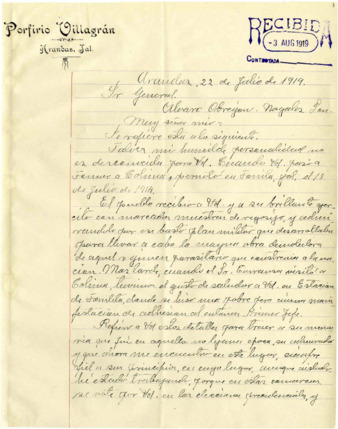 Porfirio Villagrán
Arandas, Jal.
RECIBIDA
-3 AUG 1919
CONTESTADA
Arandas, 22 de Julio de 1919.
Sr General
Alvaro Obregon. Nogales Son.
Muy señor mio:
Se refiere esta a lo siguiente.
Talvez mi humilde personalidad no
es desconocida para Vd. Cuando Vd. pasó a
tomar a Colima, y pernoctó en Tonila, Jal, el 18
de Julio de 1914.
El pueblo recibió a Vd. y a su brillante ejer-
cito con marcadas muestras de regocijo, y admi-
randolo por su basto plan militar que desarrollaba
para llevar a cabo la magna obra demoledora
de aquel
Mas tarde, cuando el Sr. Carranza visitó a
Colima, tuvimos el gusto de saludar a Vd. en Estacion
de
festacion de adhesion al entonces Primer Jefe.
Refiero a Vd. estos detalles para traer a su memo-
ria que fuí en aquella no lejana epoca, su admirador
y que ahora me encuentro en este lugar, siempre
fiel a sus principios, en cuyo lugar, aunque
he estado trabajando, porque en estas comarcas
se vote por Vd. en las elecciones presidenciales, y